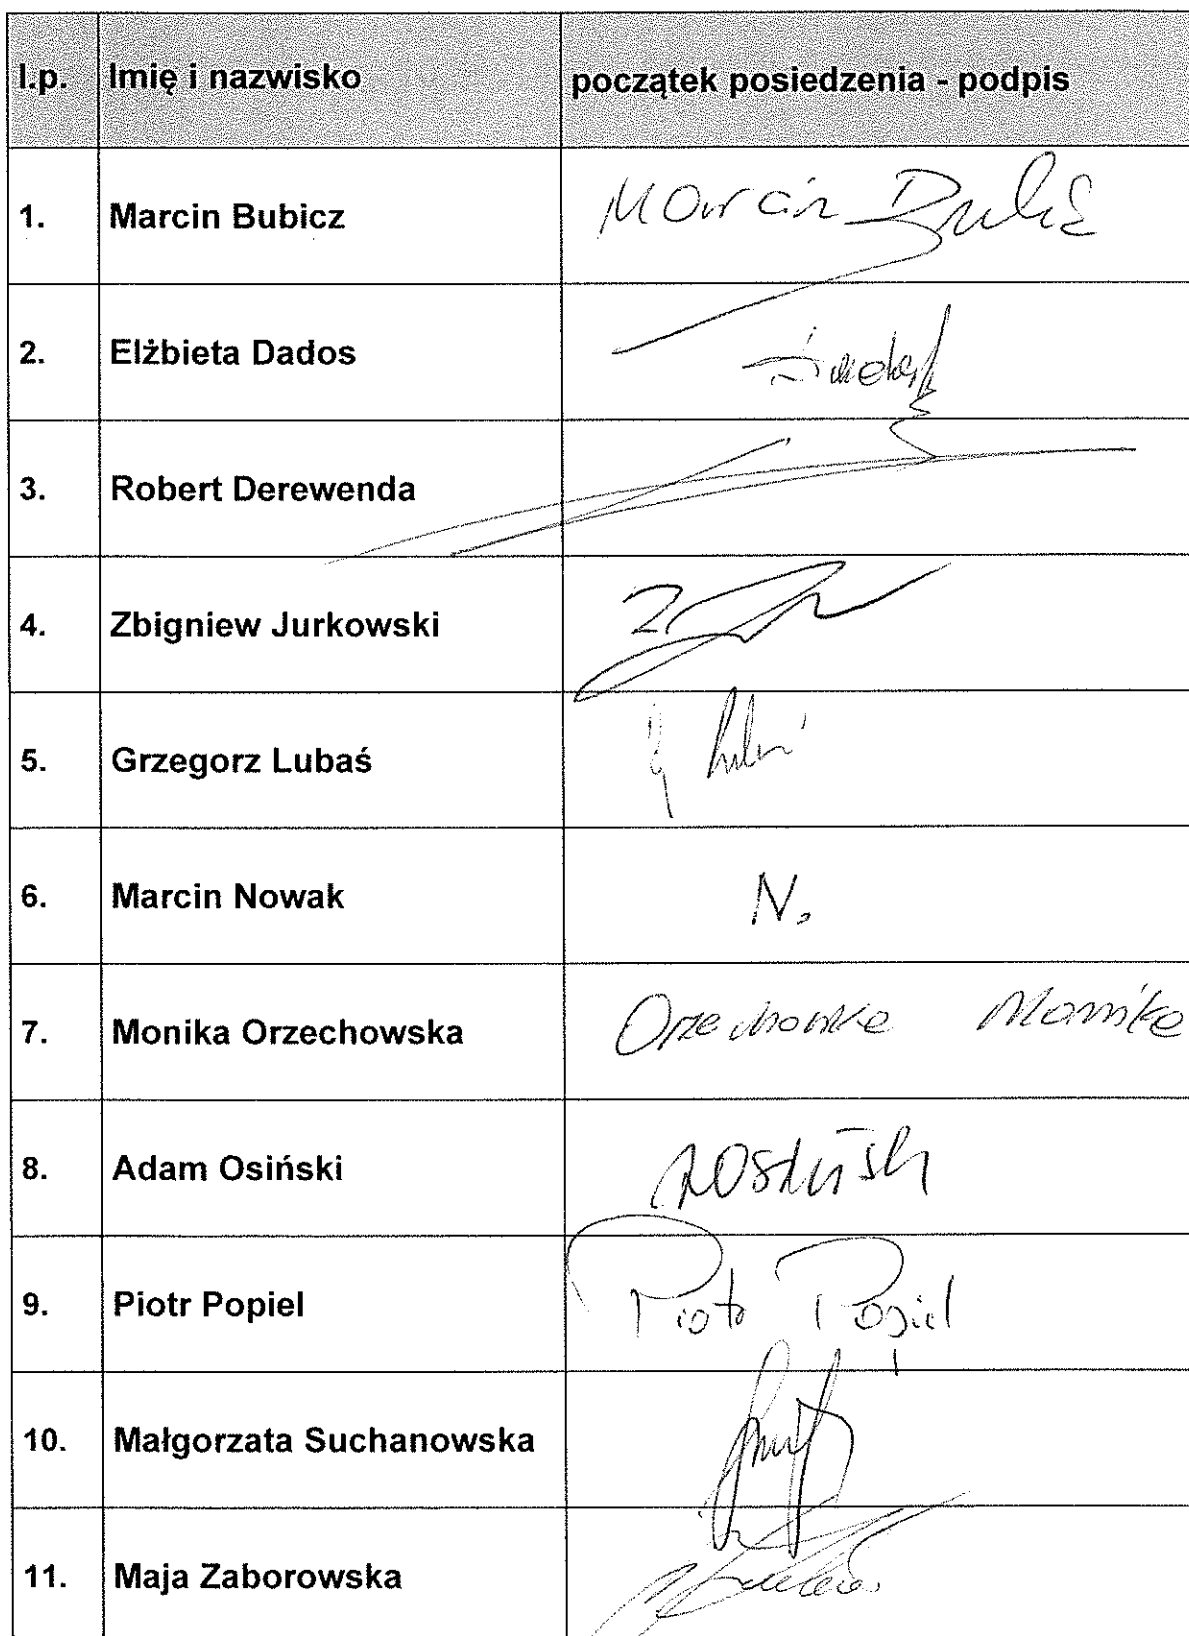 l.p. Imię i nazwisko początek posiedzenia - podpis
1. Marcin Bubicz Marcin
2. Elżbieta Dados
3. Robert Derewenda
4. Zbigniew Jurkowski
5. Grzegorz Lubaś
6. Marcin Nowak N.
7. Monika Orzechowska Monika
8. Adam Osiński
9. Piotr Popiel Piotr Popiel
10. Małgorzata Suchanowska
11. Maja Zaborowska